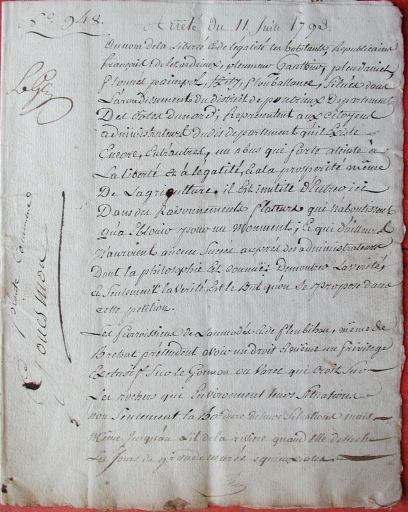 No. 948. Arrêté du 11 Juin 1793
Au nom de la Liberté & de légalité les habitants Républicains
françois de Lezardrieux, pleumeur Gautier, pleudaniel,
Plounéz paimpol, Kity, Plouballanec, Situés dans
Larondissement du district de pontrieux Departement
Des Cotes du nord; Representent aux Citoyens
administrateurs dudit departement qu'il Existe
Encore, Entr'autres, un abus qui porte atteinte à
La liberté & à légalité, & à la prosperité même
De Lagriculture. il Est inutile d'Entrer ici
Dans des Raisonnements flateurs qui n'aboutissent
qu'a Eblouir pour un moment; Ce qui d'ailleurs
N'auroient aucun Succès auprès des administrateurs
Dont la philosophie Est connue; Demontrer La verité,
Et Seulement la Verité, Est le But qu'on se propose dans
cette petition.
Les Paroissiens de Lanmodez & de Pleubihan, même de
Brehat prétendent avoir un droit & même un privilege
Exclusif Sur le Goemon ou Varec qui Croit Sur
Les rochers qui Environnent leurs Situations
non Seulement la Bordure de leurs Situations mais
Même jusqu'au lit de la riviere quand elle desseche
Les jours de grande marée equinoxiales